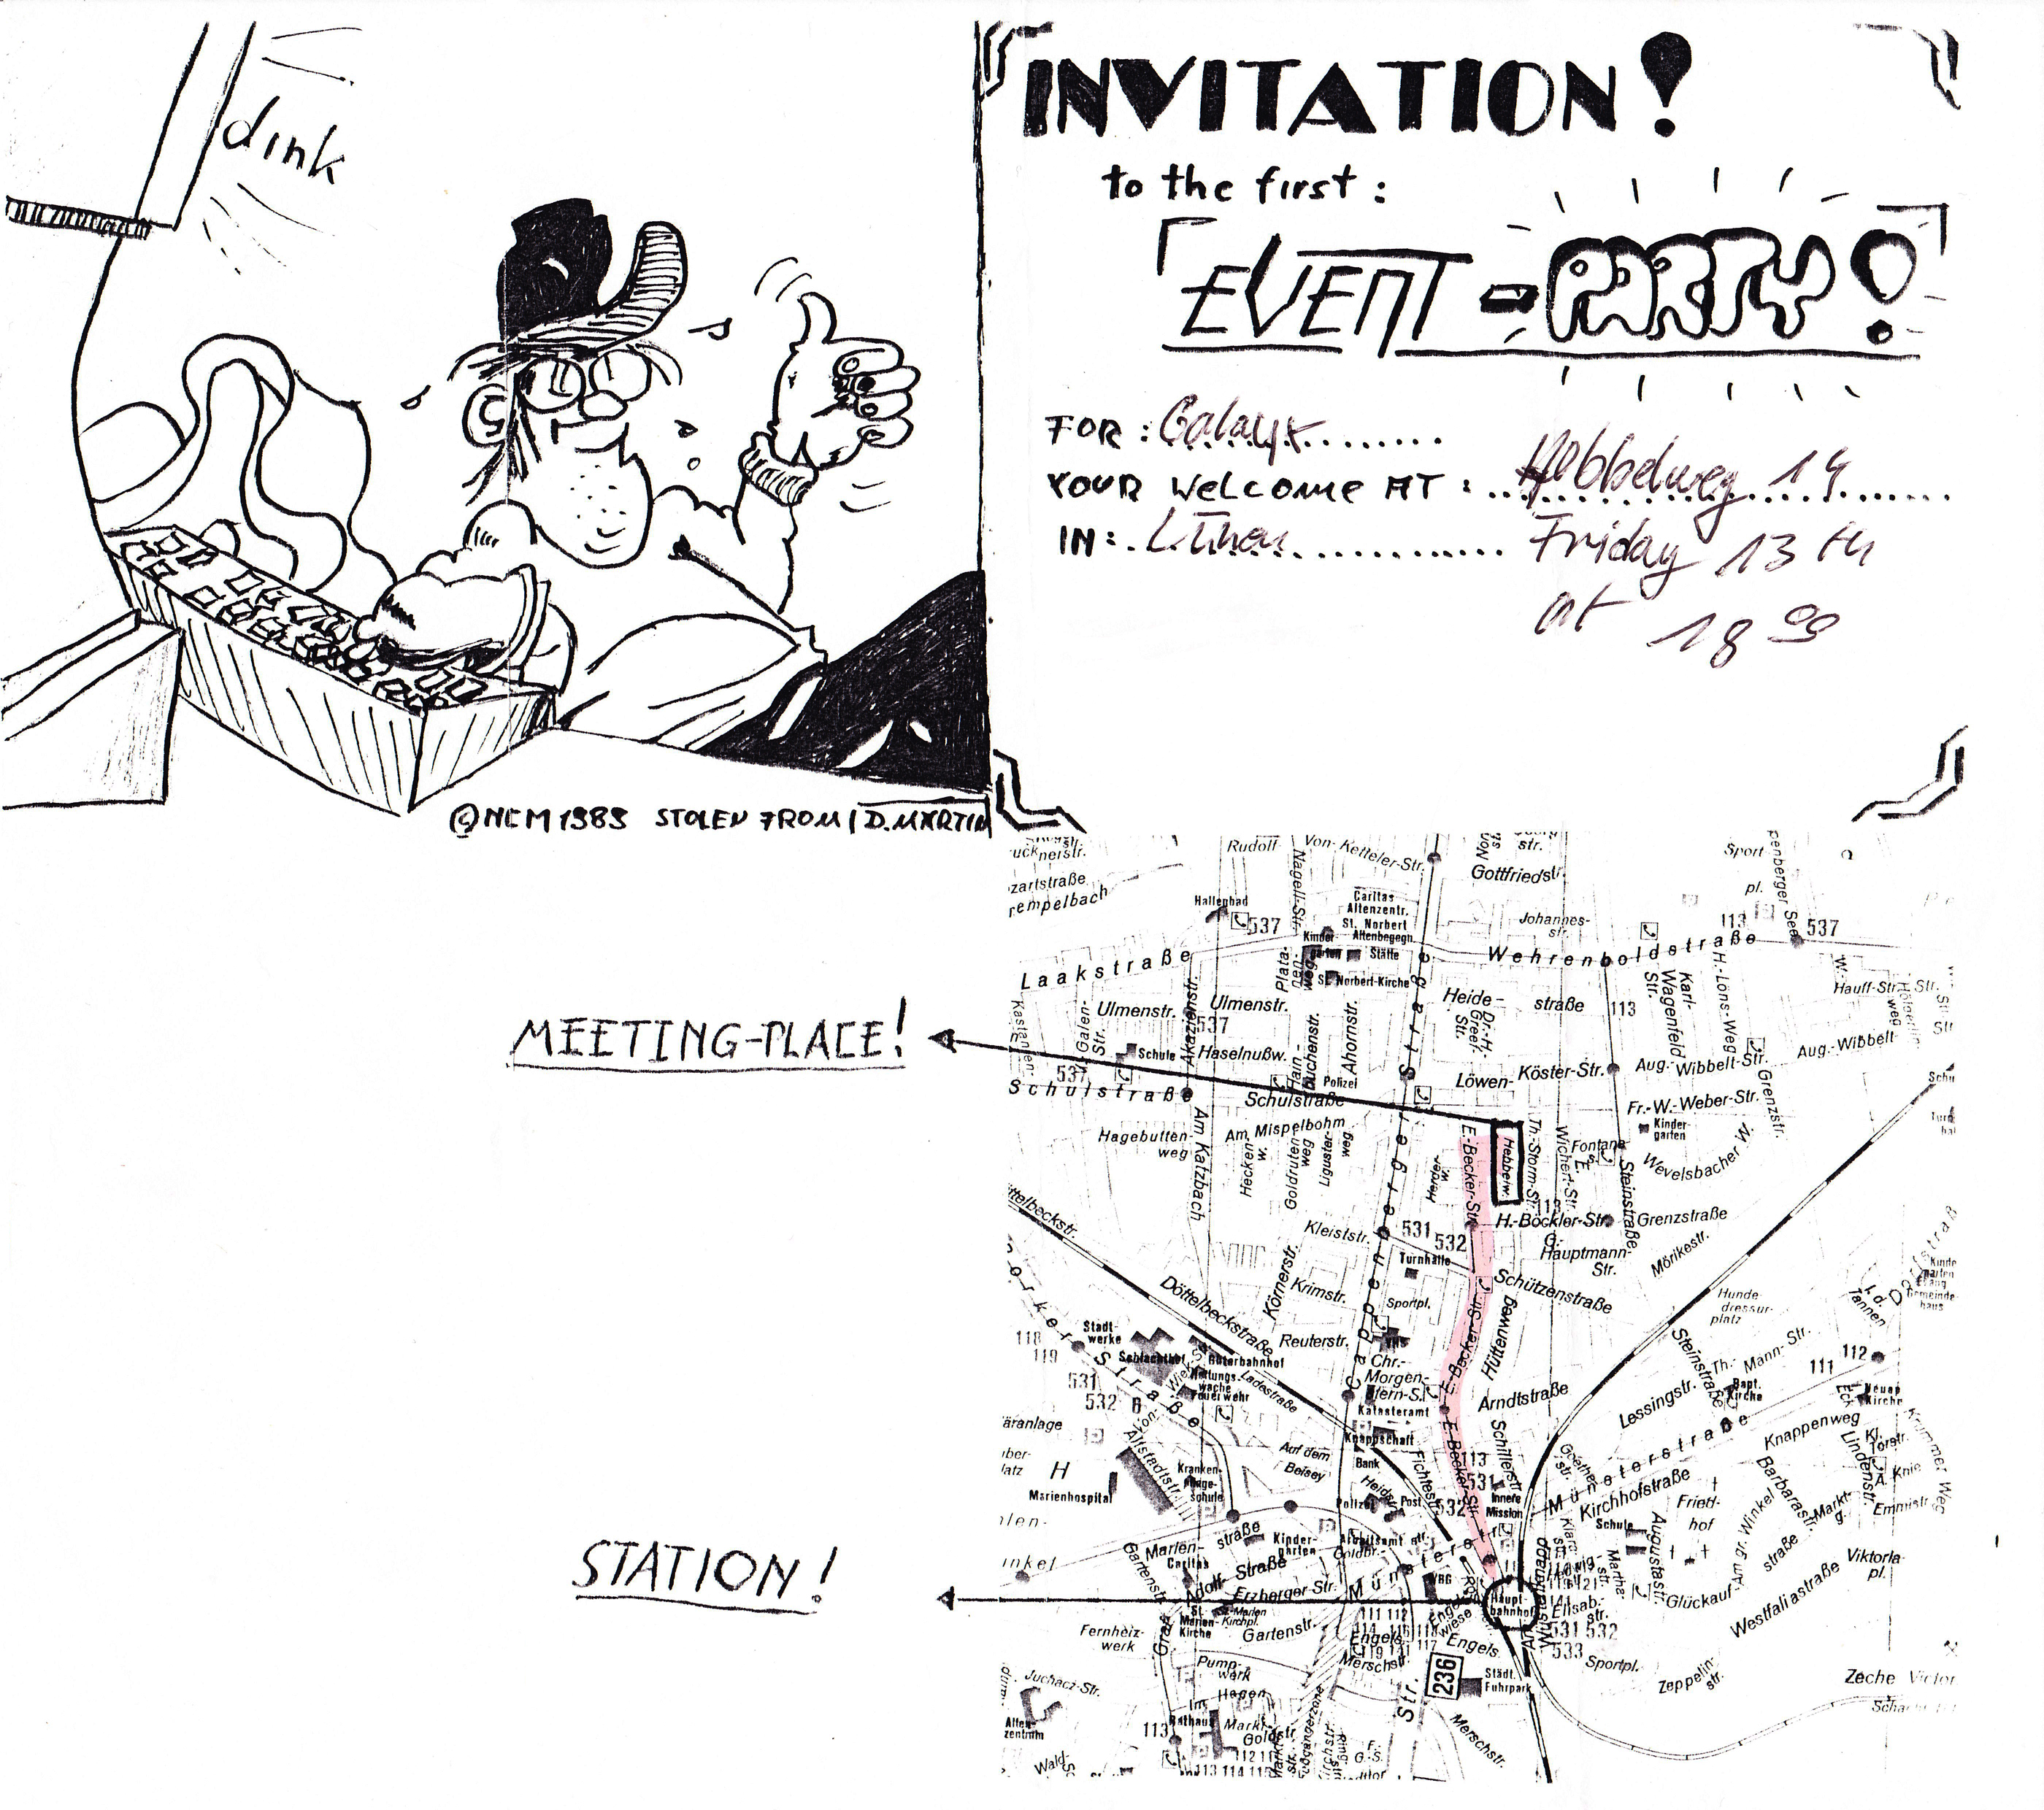 dink
©NCM 1989 STOLEN FROM D.MARTIN
INVITATION!
to the first:
EVENT-PARTY!
FOR: Galaxy
YOUR WELCOME AT: Hebbelweg 14
IN: Lünen Friday 13th
at 18 00
MEETING-PLACE!
STATION!
Rudolf-
Von-Ketteler-Str.
str.
Gottfriedstr.
Sport
pl.
zartstraße
rempelbach
Hallenbad
537
Nagell-Str.
Caritas
Altenzentr.
St. Norbert
Altenbegegn.
Stätte
Kinder-
garten
St. Norbert-Kirche
Johannes-
str.
113
537
Laakstraße
Wehrenboldstraße
Plata-
nen-
weg
Kastanien-
Galen-
Str.
Ulmenstr.
Ulmenstr.
Akazienstr.
537
Heide-
straße
113
Dr.-H.-
Greef-
Str.
Karl-
Wagenfeld
Str.
H.-Löns-Weg
Hauff-Str.
Schule
Haselnußw.
Hain-
buchenstr.
Ahornstr.
Polizei
Löwen-
Köster-Str.
Aug.-Wibbelt-Str.
Aug.-Wibbelt-
Grenzstr.
537
Schulstraße
Schulstraße
Fr.-W.-Weber-Str.
Kinder-
garten
Hagebutten-
weg
Am Katzbach
Am Mispelbohm
Hecken
w.
Goldruten
weg
Liguster-
weg
Herder-
w.
E-Becker-Str.
Hebbelw.
Th.-Storm-Str.
Wichert-Str.
Fontane
Steinstraße
Wevelsbacher W.
Cappenberger Straße
H.-Böckler-Str.
113
Grenzstraße
Kleiststr.
531
532
Turnhalle
G.-
Hauptmann-
Str.
Mörikestr.
Körnerstr.
Krimstr.
Sportpl.
Schützenstraße
Hunde-
dressur-
platz
Döttelbeckstraße
Reuterstr.
E-Becker-Str.
Hüttenweg
118
119
Stadt-
werke
Schlachthof
Güterbahnhof
Rettungs-
wache
Feuerwehr
Ladestraße
VHS
Chr.-
Morgen-
stern-S.
Katasteramt
Arndtstraße
Steinstraße
Th.-Mann-Str.
111
112
531
532
Lessingstr.
Bapt.
Kirche
Neuap.
Kirche
Knappschaft
Bank
Auf dem
Belsey
Fichtestr.
Schillerstr.
E-Becker-Str.
Münsterstraße
Knappenweg
Lindenstr.
Krummer Weg
Marienhospital
Altstadtstr.
Kranken-
pflege-
schule
Polizei
Post
113
531
532
Innere
Mission
Goethe-
str.
Kirchhofstraße
Fried-
hof
Barbarastr.
Markt-
A. Knie
Emmistr.
Marien-
straße
Kinder-
garten
Arbeitsamt
Schule
Augustastr.
Martha-
str.
straße
Caritas
Erzberger Str.
Hauptbahnhof
Elisab.-
str.
Glückauf-
Westfaliastraße
Viktoria-
pl.
St.
Marien-
Kirche
Gartenstr.
Gartenstr.
Engels-
531 532
533
Sportpl.
Zeppelin-
str.
Fernheiz-
werk
Pump-
werk
Merschstr.
236
Städt.
Fuhrpark
Zeche Victor
Juchacz-Str.
Alten-
zentrum
113
Rathaus
Markt-
Goldstr.
Merschstr.
113 114 115